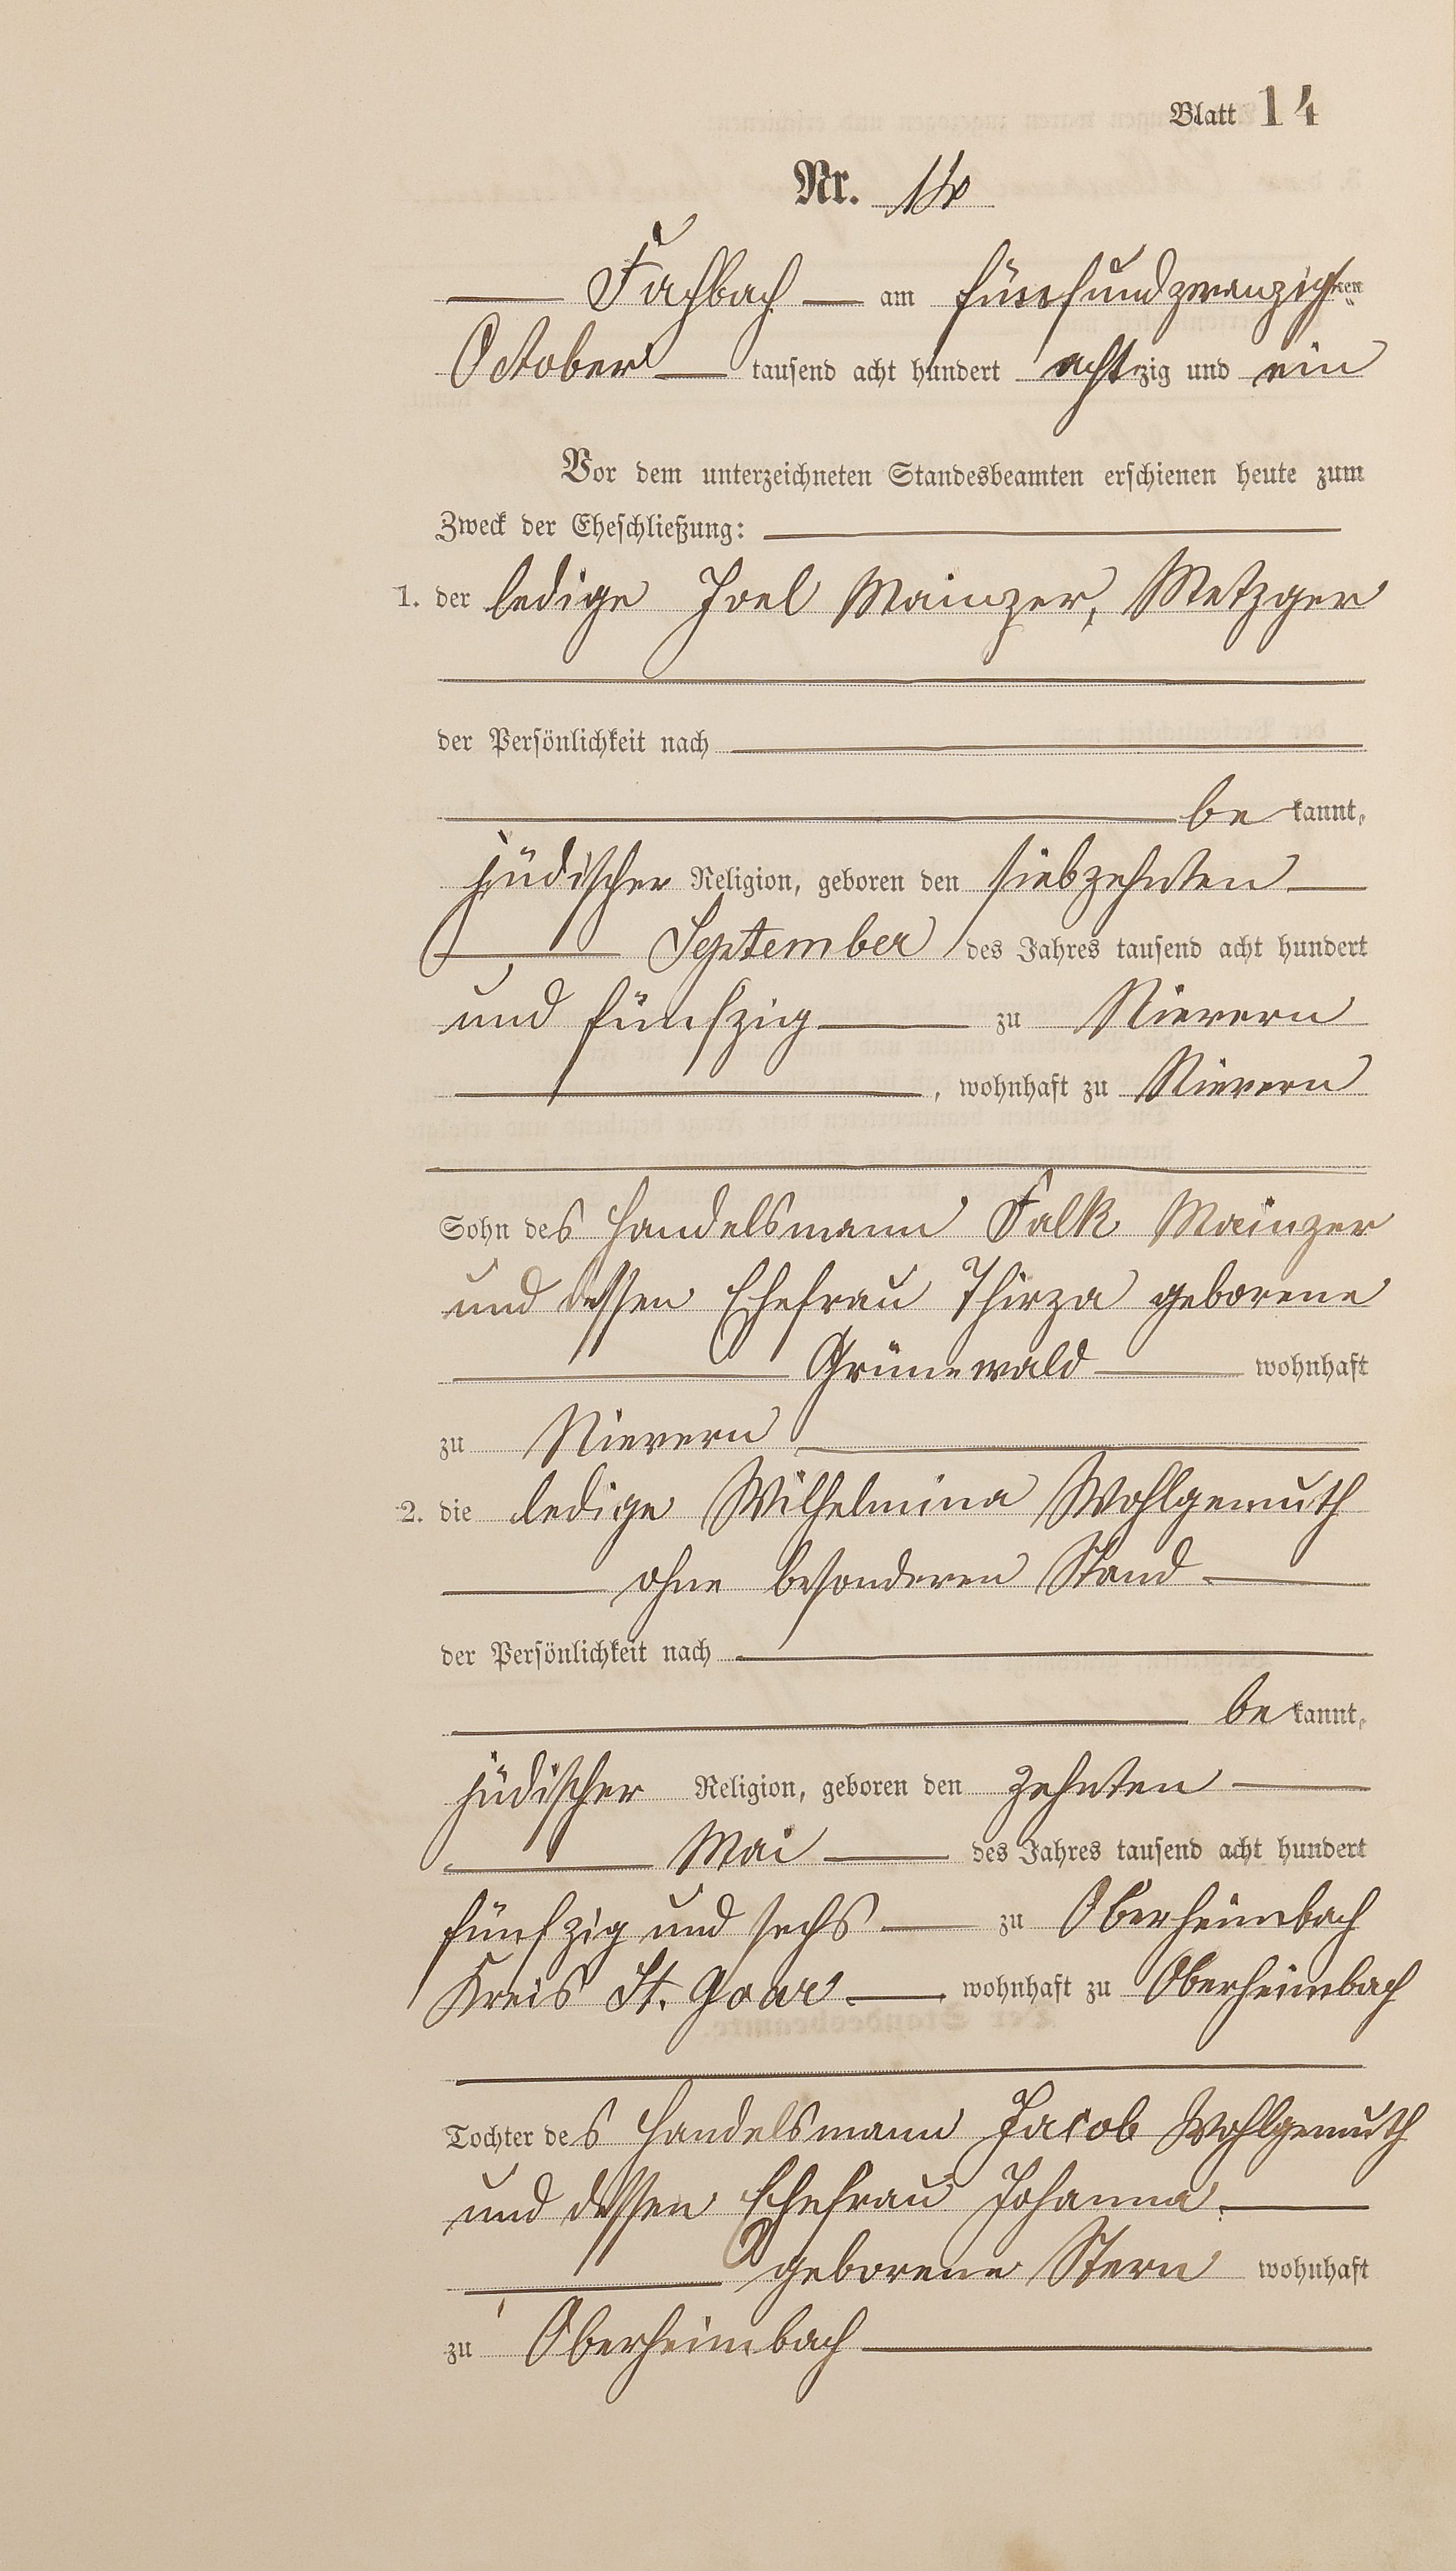 Blatt 14
Nr. 14
Fachbach am fünfundzwanzigsten
October tausend acht hundert achtzig und ein
Vor dem unterzeichneten Standesbeamten erschienen heute zum
Zweck der Eheschließung:
1. der ledige Joel Mainzer, Metzger
der Persönlichkeit nach
be kannt,
jüdischer Religion, geboren den siebzehnten
September des Jahres tausend acht hundert
und fünfzig zu Nievern
, wohnhaft zu Nievern
Sohn des Handelsmann Falk Mainzer
und dessen Ehefrau Thirza geborene
Grünewald wohnhaft
zu Nievern
2. die ledige Wilhelmina Wohlgemuth
ohne besonderen Stand
der Persönlichkeit nach
be kannt,
jüdischer Religion, geboren den zehnten
Mai des Jahres tausend acht hundert
fünfzig und sechs zu Oberheimbach
Kreis St. Goar, wohnhaft zu Oberheimbach
Tochter des Handelsmann Jacob Wohlgemuth
und dessen Ehefrau Johanna
geborene Stern wohnhaft
zu Oberheimbach